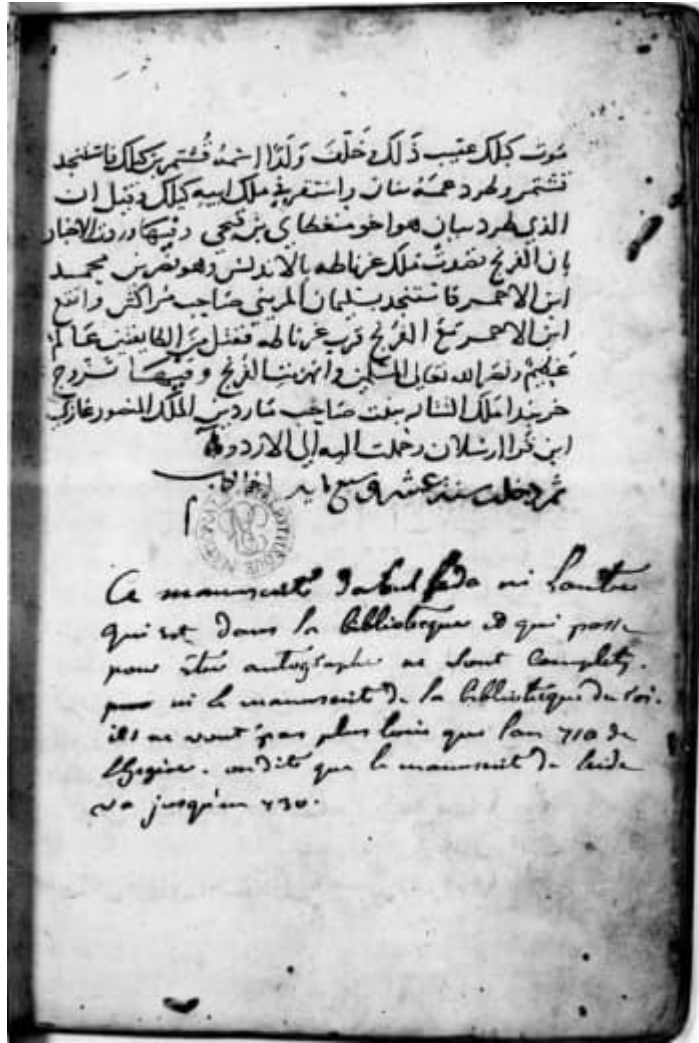 موت كبلك عقيب ذلك وخلف ولدا اسمه قشتمر بن كبلك فاستنجد
قشتمر وطرد عمه بيان واستقر في ملك ابيه كبلك وقيل ان
الذي طرد بيان هو اخوه منغطاي بن قبجي وفيها وردت الاخبار
بان الفرنج قصدت ملك غرناطة بالاندلس وهو نصر بن محمد
ابن الاحمر فاستنجد بسليمان المريني صاحب مراكش واتقع
ابن الاحمر مع الفرنج قرب غرناطه فقتل من الطايفتين عالم
عظيم ونصر الله تعالى المسلمين وانهزمت الفرنج وفيها تزوج
خربندا ملك التتار بنت صاحب ماردين الملك المنصور غازي
ابن قرا ارسلان وحملت اليه الى الاردو
ثم دخلت سنة عشر وسبع مايه
Ce manuscrit d'abulfeda ni l'autre
qui est dans la bibliotèque et qui passe
pour être autographe ne sont complets.
ni le manuscrit de la bibliotèque du roi.
ils ne vont pas plus loin que l'an 710 de
l'hegire. on dit que le manuscrit de leide
va jusqu'en 730.